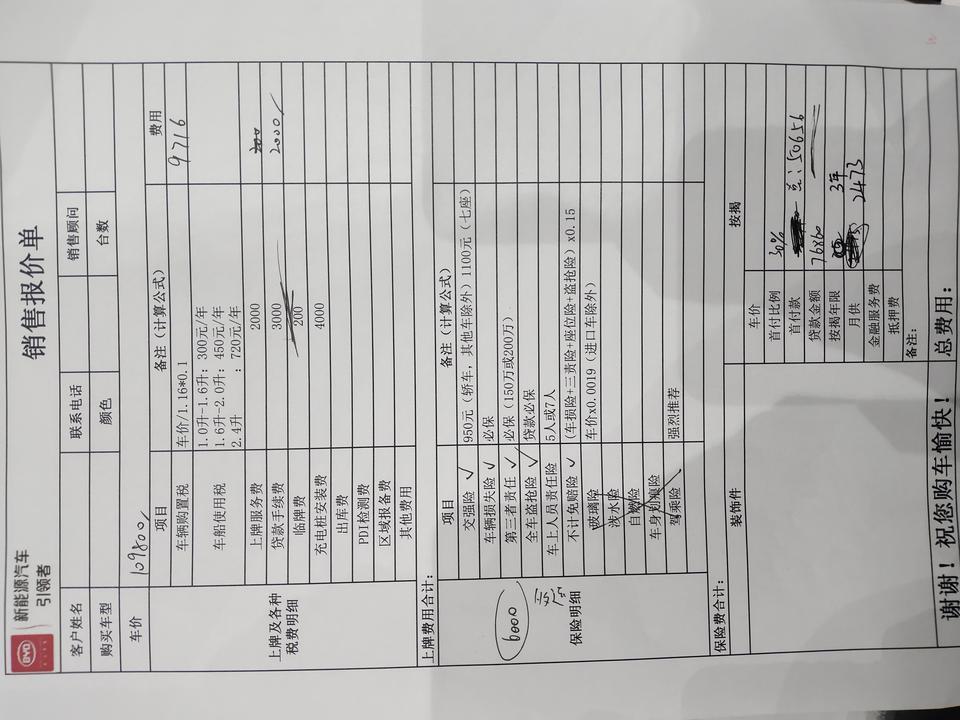 BYD
新能源汽车
引领者
销售报价单
客户姓名 联系电话 销售顾问
购买车型 颜色 台数
车价 109800
上牌及各种税费明细
项目 备注（计算公式） 费用
车辆购置税 车价/1.16*0.1 9716
车船使用税 1.0升-1.6升：300元/年
1.6升-2.0升：450元/年
2.4升 ：720元/年
上牌服务费 2000
贷款手续费 3000 2000
临牌费 200
充电桩安装费 4000
出库费
PDI检测费
区域报备费
其他费用
上牌费用合计：
6000
保险明细
项目 备注（计算公式）
交强险 ✓ 950元（轿车，其他车除外）1100元（七座）
车辆损失险 ✓ 必保
第三者责任 ✓ 必保（150万或200万）
全车盗抢险 ✓ 贷款必保
车上人员责任险 5人或7人
不计免赔险 ✓ （车损险+三责险+座位险+盗抢险）x0.15
玻璃险 车价x0.0019（进口车除外）
涉水险
自燃险
车身划痕险
驾乘险 强烈推荐
保险费合计：
装饰件 按揭
车价
首付比例 30%
首付款 50656
贷款金额 76860
按揭年限 3年
月供 2473
金融服务费
抵押费
备注：
谢谢！祝您购车愉快！ 总费用：